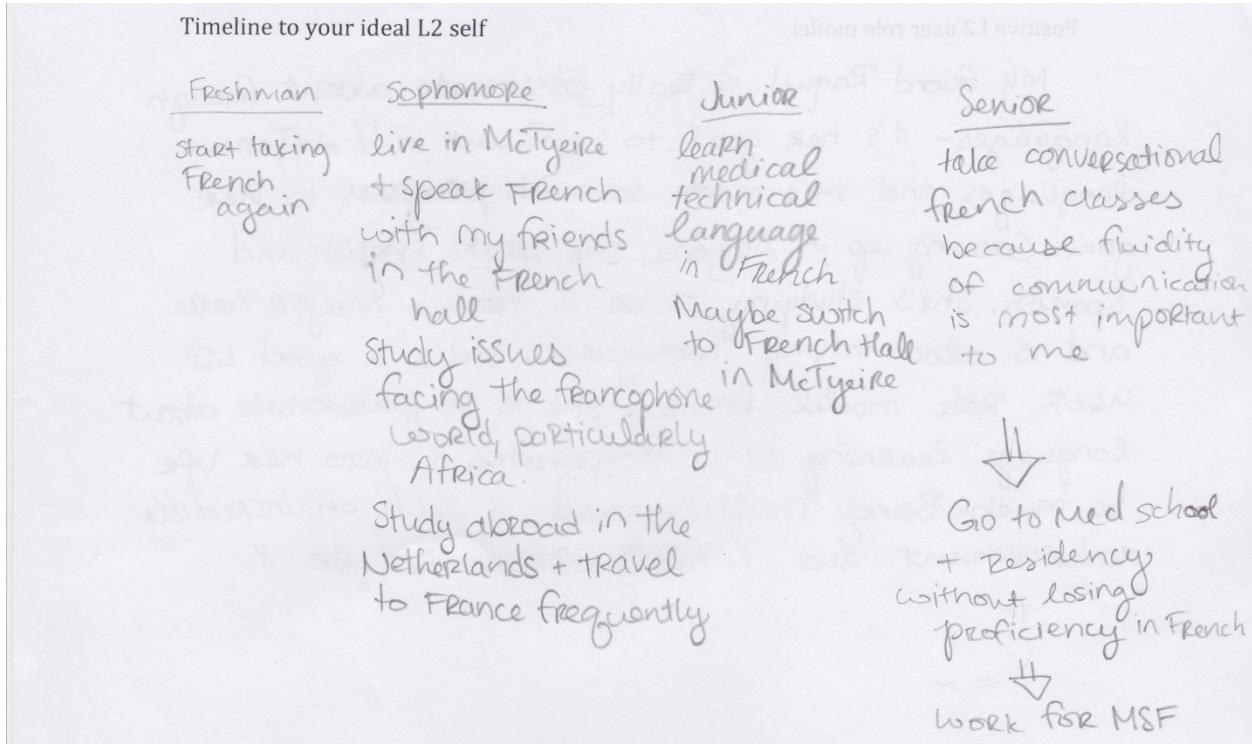 Timeline to your ideal L2 self
Positive L2 user role model
Freshman
start taking
French
again
Sophomore
live in McTyeire
+ speak French
with my friends
in the French
hall
Study issues
facing the francophone
world, particularly
Africa.
Study abroad in the
Netherlands + travel
to France frequently
Junior
learn
medical
technical
language
in French
Maybe switch
to French Hall
in McTyeire
Senior
take conversational
french classes
because fluidity
of communication
is most important
to me
⇓
Go to Med school
+ Residency
without losing
proficiency in French
⇓
work for MSF